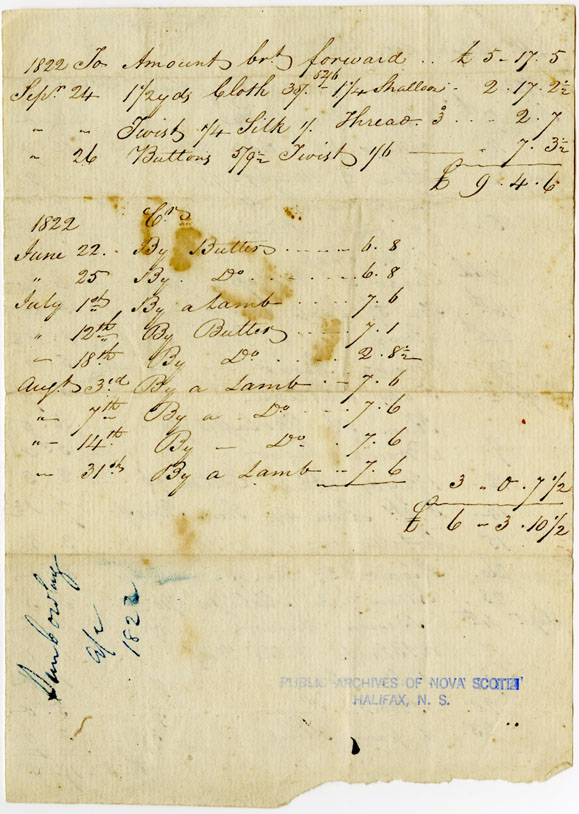 1822 To Amount brt forward .. £ 5 - 17. 5
Sepr 24 1 1/2 yds Cloth 35/ 52/6 1 1/4 Shalloon . 2. 17. 2 1/2
" " Twist 1/4 Silk 1/ Thread. 3 ... " 2. 7
" 26 Buttons 5/9 1/2 Twist 1/6 — " 7. 3 1/2
£ 9. 4. 6
1822 Cr
June 22.. By Butter ..... 6. 8
" 25 By Do .... 6. 8
July 1st By a Lamb .... 7. 6
" 12th By Butter .... 7. 1
" 18th By Do .... 2. 8 1/2
Augt 3rd By a Lamb .. 7. 6
" 7th By a Do ... 7. 6
" 14th By — Do .. 7. 6
" 31st By a Lamb .. 7. 6
3 " 0. 7 1/2
£ 6 - 3. 10 1/2
a/c
1822
PUBLIC ARCHIVES OF NOVA SCOTIA
HALIFAX, N. S.